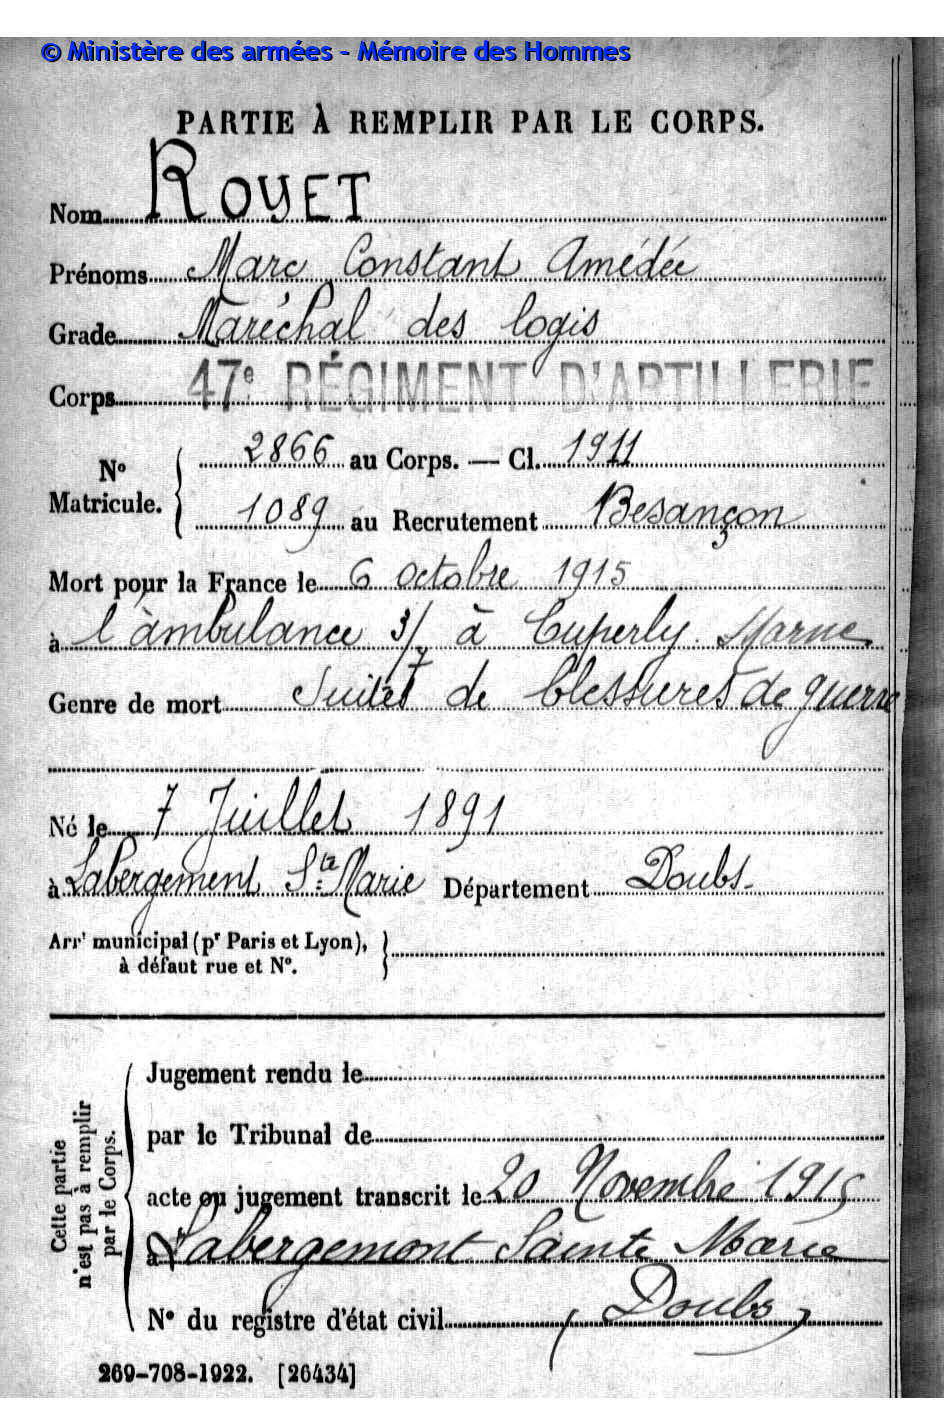 © Ministère des armées - Mémoire des Hommes
PARTIE À REMPLIR PAR LE CORPS.
Nom ROYET
Prénoms Marc Constant Amédée
Grade Maréchal des logis
Corps 47e RÉGIMENT D'ARTILLERIE
N° Matricule. { 2866 au Corps. — Cl. 1911
1089 au Recrutement Besançon
Mort pour la France le 6 octobre 1915
à l'ambulance 3/7 à Cuperly Marne
Genre de mort Suites de blessures de guerre
Né le 7 Juillet 1891
à Labergement Ste Marie Département Doubs.
Arrt municipal (pr Paris et Lyon), à défaut rue et N°. }
Cette partie n'est pas à remplir par le Corps.
Jugement rendu le
par le Tribunal de
acte ou jugement transcrit le 20 Novembre 1915
à Labergement Sainte Marie
N° du registre d'état civil (Doubs)
269-708-1922. [26434]